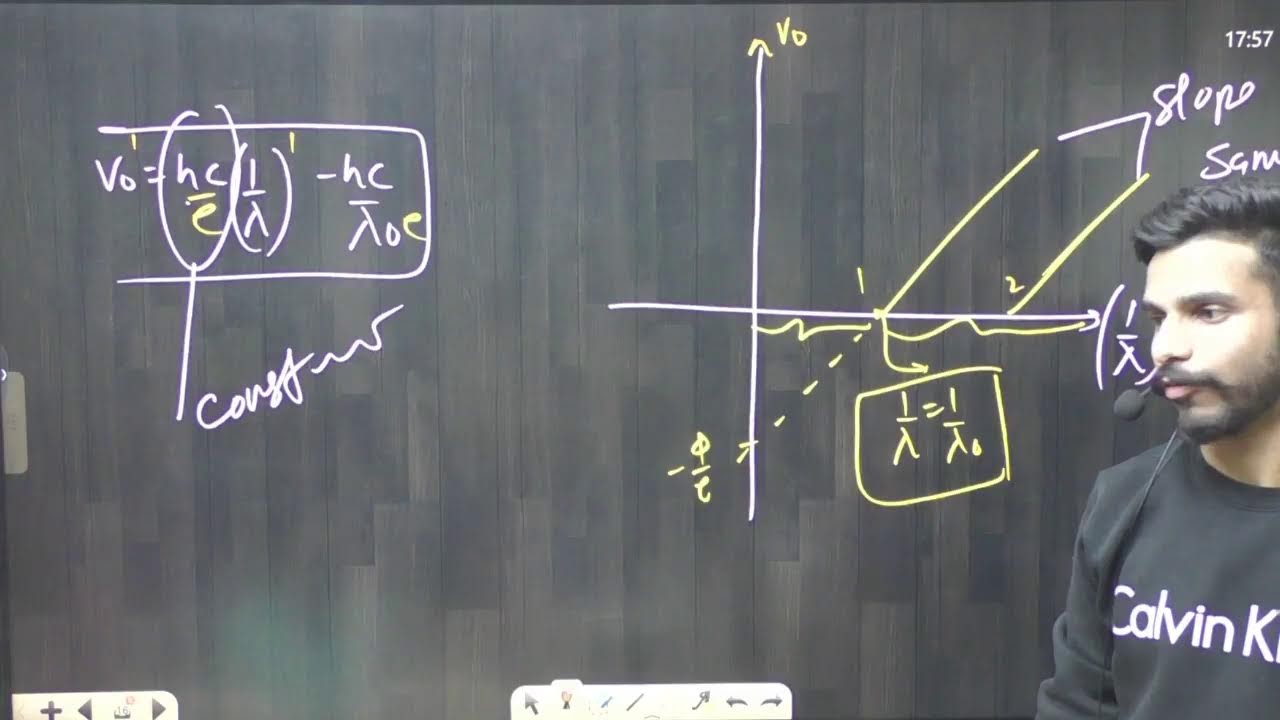 17:57
V₀ = (hc/e)(1/λ)¹ - hc/λ₀e
constant
V₀
slope
Sam
1
2
(1/λ
1/λ = 1/λ₀
-Φ/e
Calvin K
16